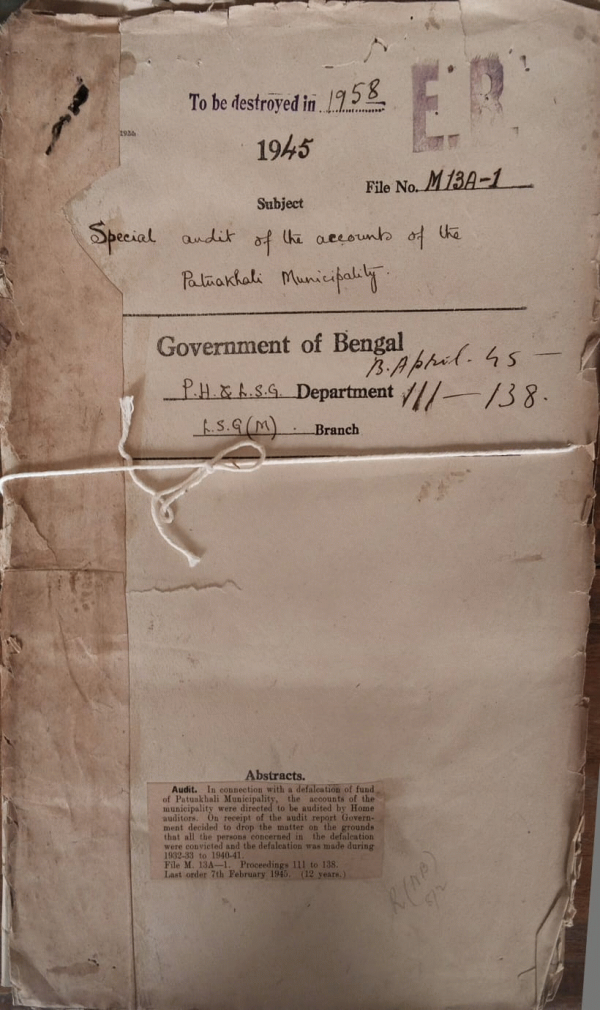 E.B.
To be destroyed in 1958
1945
File No. M13A-1
Subject
Special audit of the accounts of the
Patuakhali Municipality.
Government of Bengal
B. April. 45 -
P.H. & L.S.G. Department 111-138.
L.S.G(M). Branch
Abstracts.
Audit. In connection with a defalcation of fund
of Patuakhali Municipality, the accounts of the
municipality were directed to be audited by Home
auditors. On receipt of the audit report Govern-
ment decided to drop the matter on the grounds
that all the persons concerned in the defalcation
were convicted and the defalcation was made during
1932-33 to 1940-41.
File M. 13A—1. Proceedings 111 to 138.
Last order 7th February 1945. (12 years.)